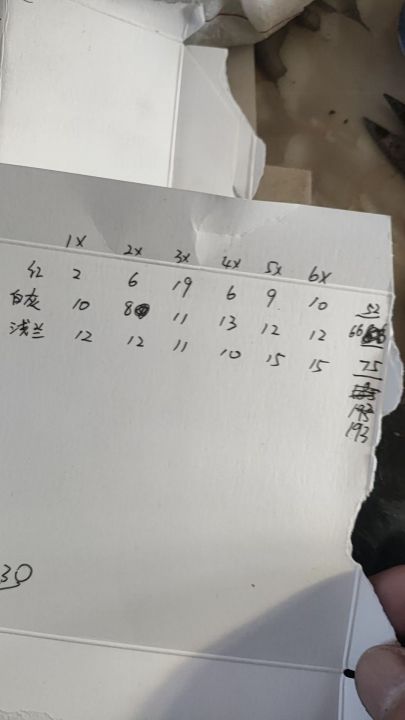 1X 2X 3X 4X 5X 6X
红 2 6 19 6 9 10 52
白灰 10 8 11 13 12 12 66
浅兰 12 12 11 10 15 15 75
193
193
30